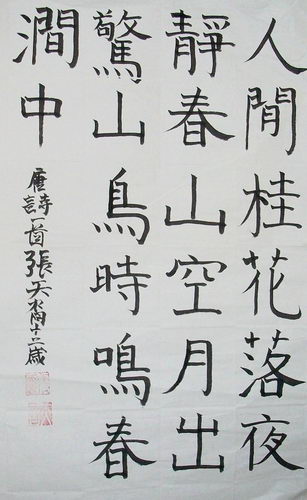 人閒桂花落夜
靜春山空月出
驚山鳥時鳴春
澗中
唐詩一首張天十二歲